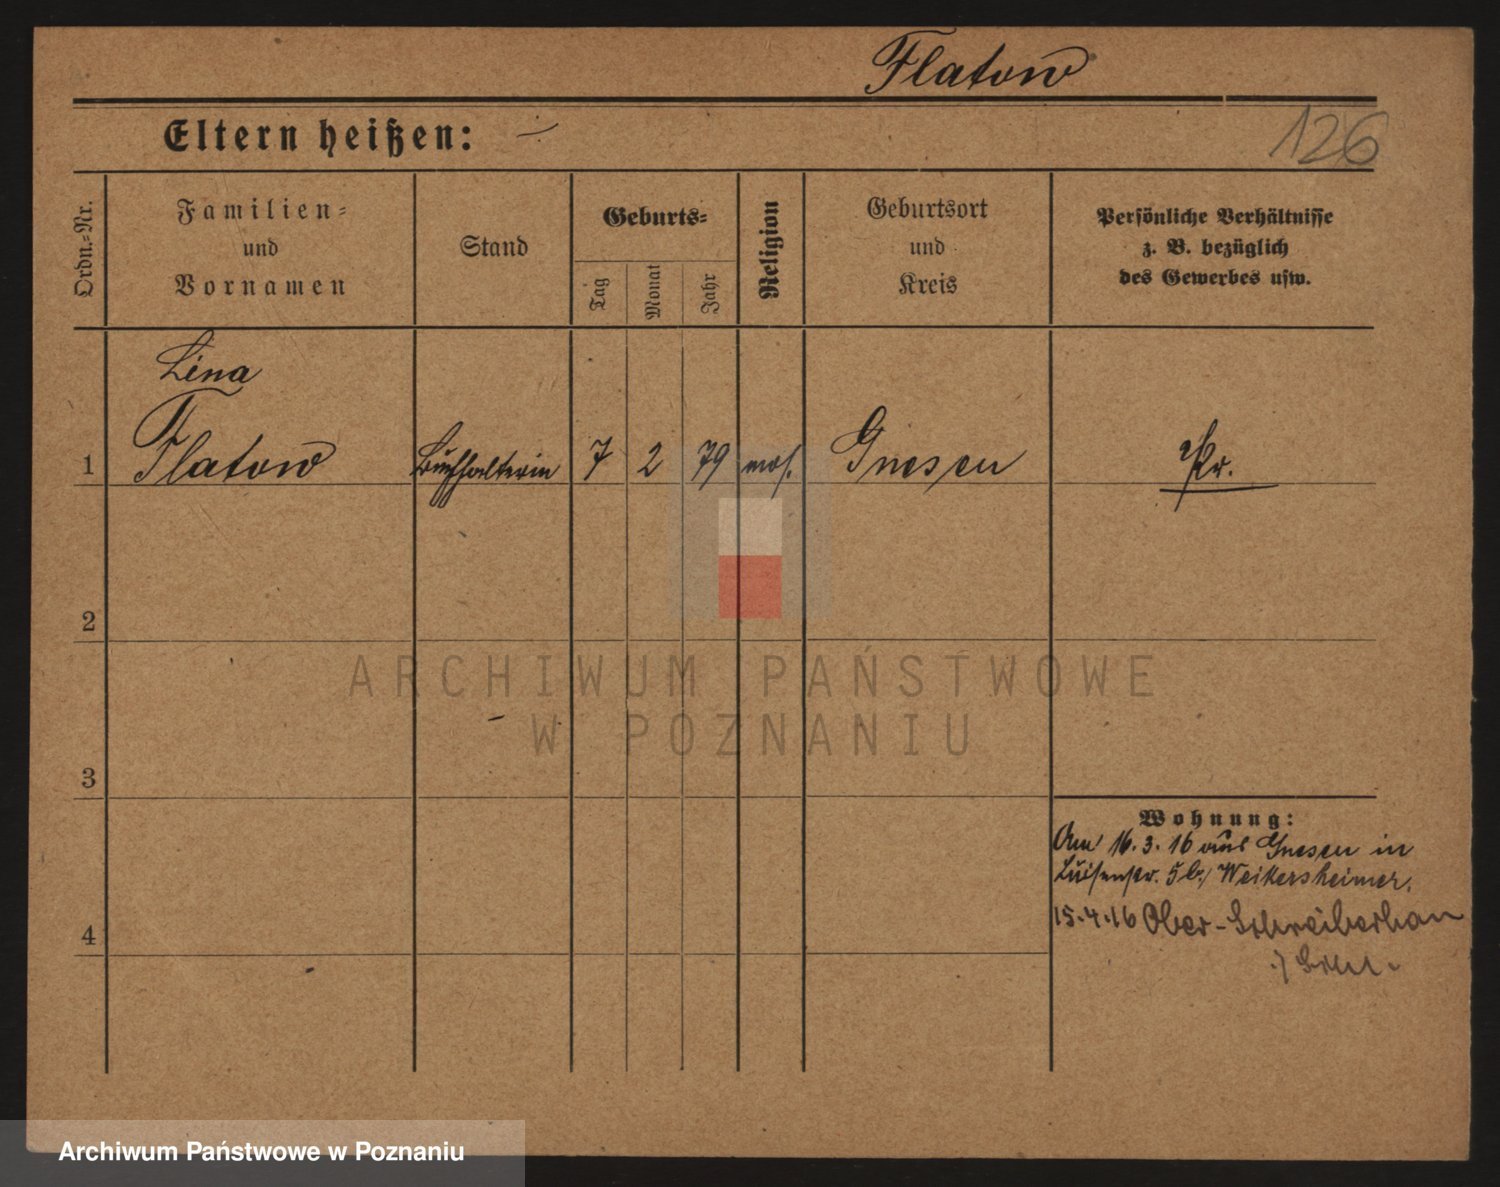 Flatow
126
Eltern heißen: —
Ordn.-Nr.
Familien-
und
Vornamen
Stand
Geburts-
Tag
Monat
Jahr
Religion
Geburtsort
und
Kreis
Persönliche Verhältnisse
z. B. bezüglich
des Gewerbes usw.
Lina
1 Flatow Buchhalterin 7 2 79 mos. Gnesen Pr.
2
3
4
Wohnung:
Am 16.3.16 aus Gnesen in
Luisenstr. 5 b/ Weikersheimer.
15.4.16 Ober-Schreiberhau
ARCHIWUM PAŃSTWOWE
W POZNANIU
Archiwum Państwowe w Poznaniu